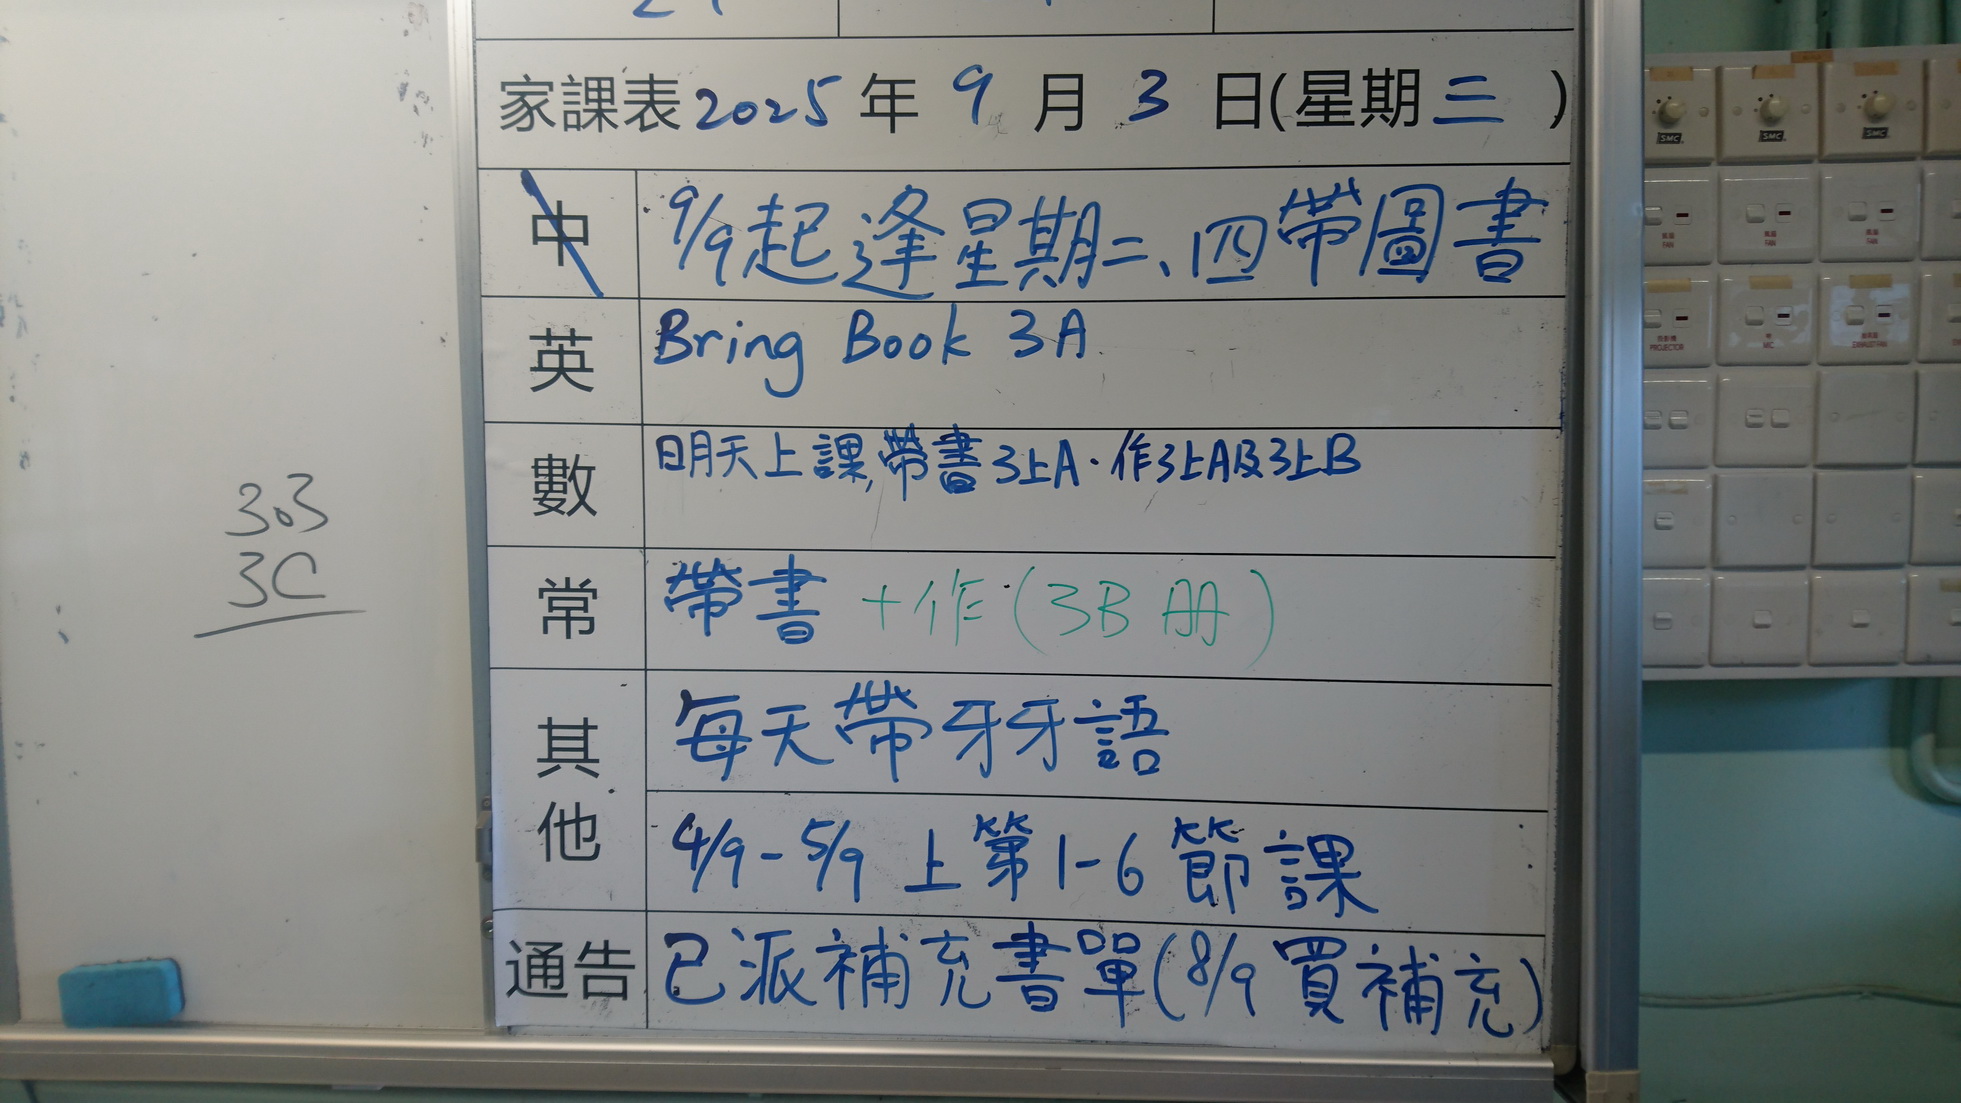 303
3C
家課表2025年9月3日(星期三)
中 9/9起逢星期二、四帶圖書
英 Bring Book 3A
數 明天上課,帶書3上A.作3上A及3上B
常 帶書+作(3B冊)
其他 每天帶牙牙語
4/9-5/9上第1-6節課
通告 已派補充書單(8/9買補充)
SMC SMC SMC
FAN FAN FAN
PROJECTOR MIC EXHAUST FAN